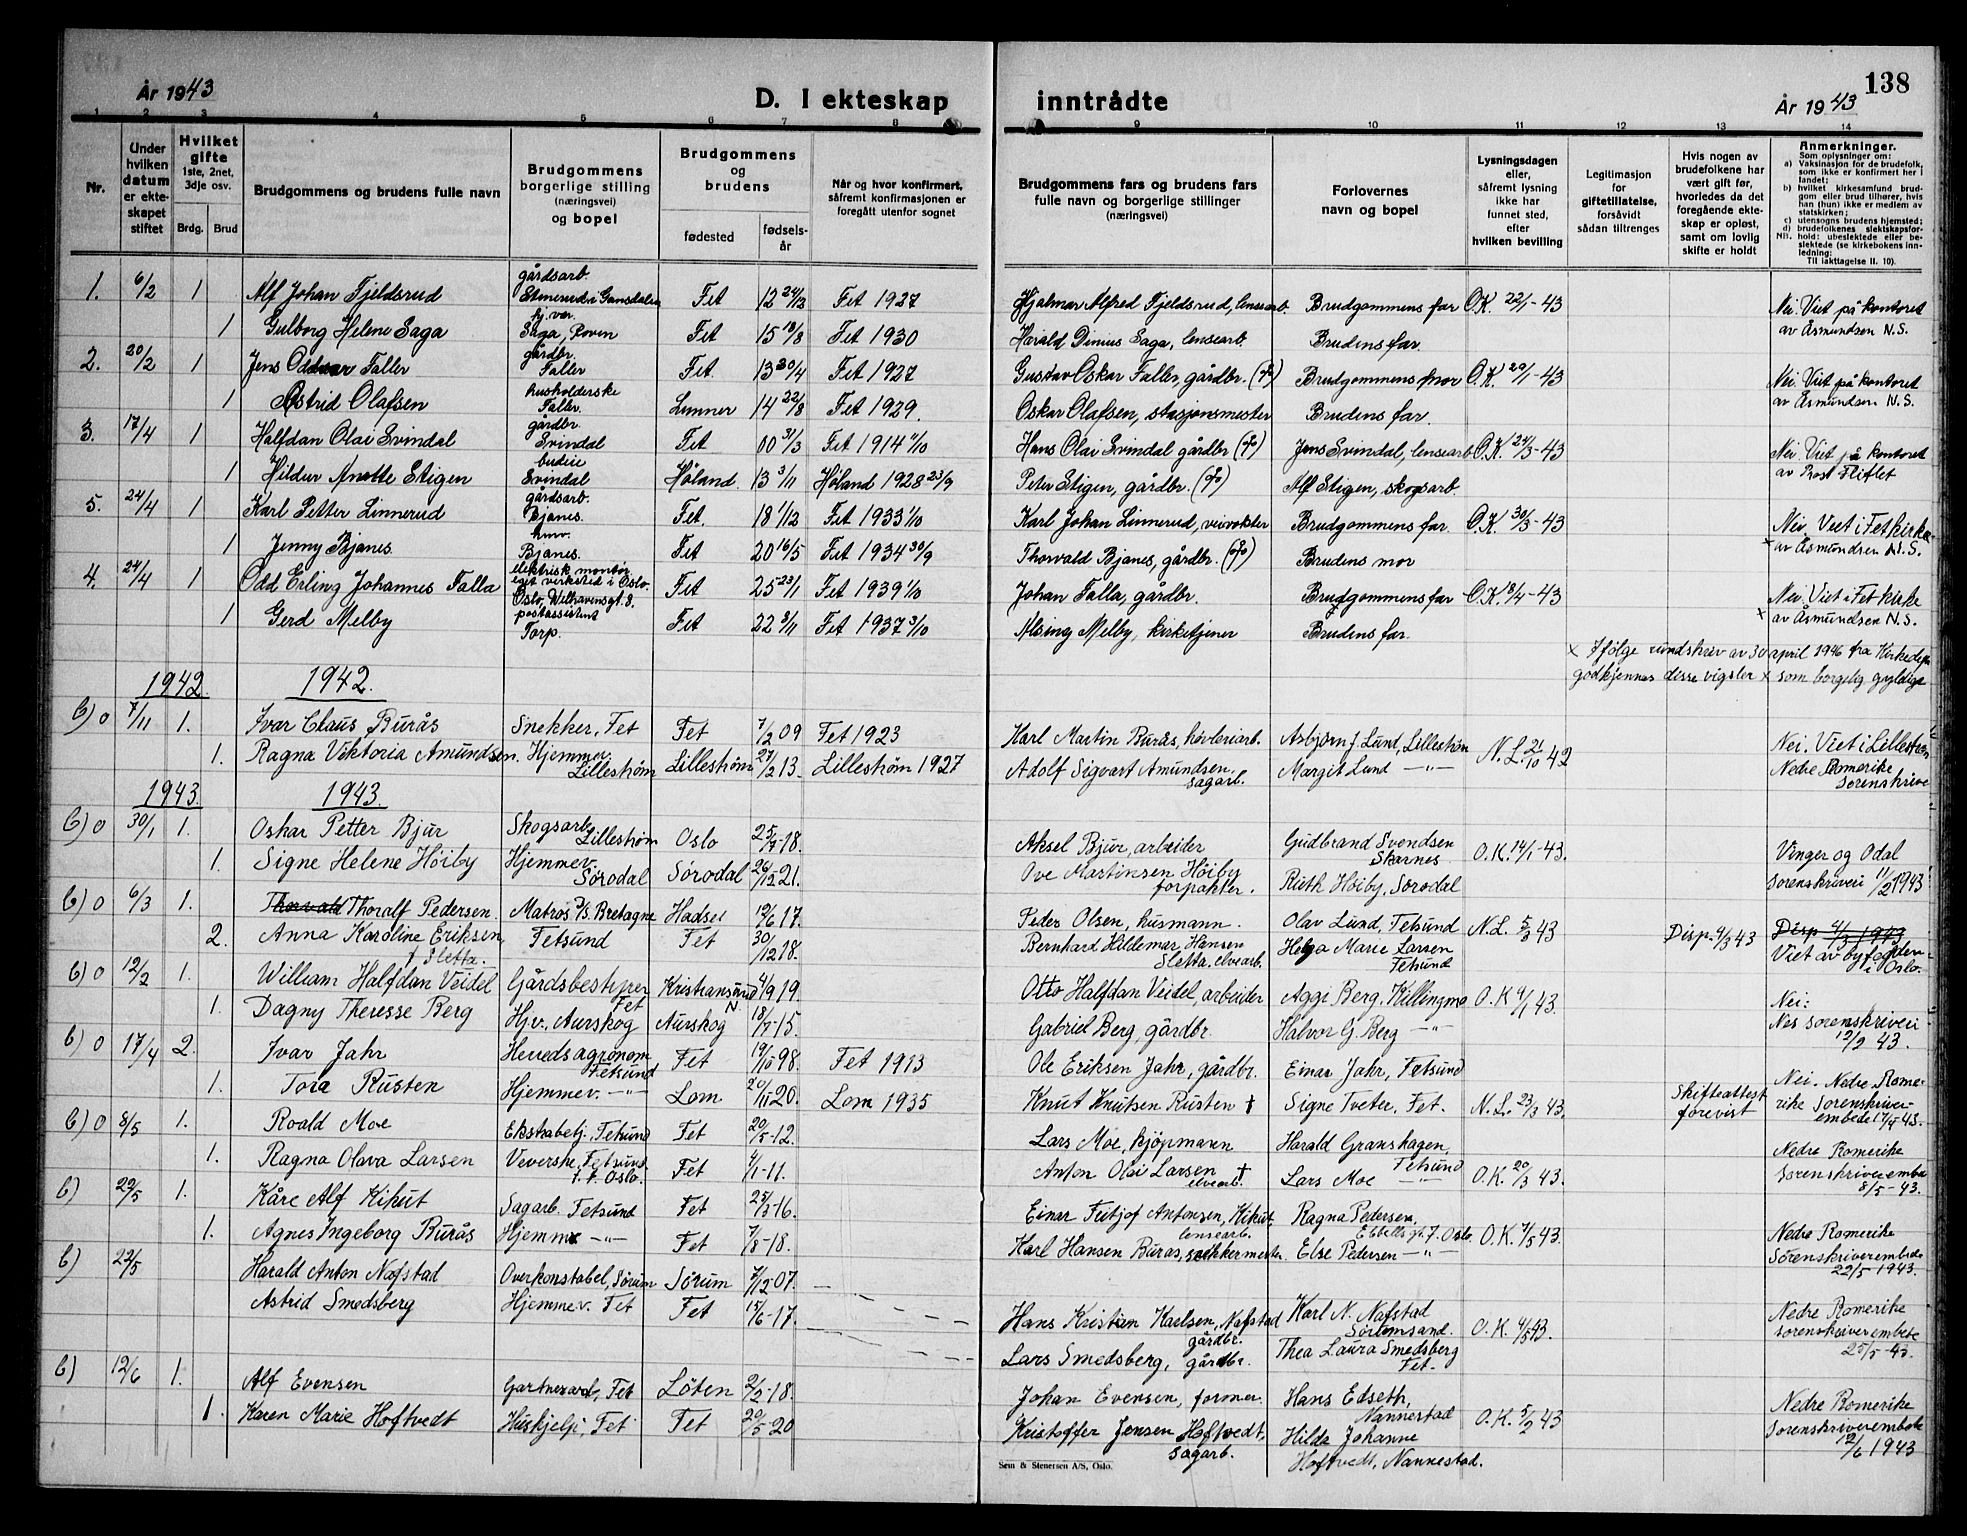 År 1943
D. I ekteskap inntrådte
År 1943
138
1 2 3 4 5 6 7 8 9 10 11 12 13 14
Nr.
Under hvilken datum er ekteskapet stiftet
Hvilket gifte 1ste, 2net, 3dje osv.
Brdg. Brud
Brudgommens og brudens fulle navn
Brudgommens borgerlige stilling (næringsvei) og bopel
Brudgommens og brudens
fødested
fødselsår
Når og hvor konfirmert, såfremt konfirmasjonen er foregått utenfor sognet
Brudgommens fars og brudens fars fulle navn og borgerlige stillinger (næringsvei)
Forlovernes navn og bopel
Lysningsdagen eller, såfremt lysning ikke har funnet sted, efter hvilken bevilling
Legitimasjon for giftetillatelse, forsåvidt sådan tiltrenges
Hvis nogen av brudefolkene har vært gift før, hvorledes da det foregående ekteskap er opløst, samt om lovlig skifte er holdt
Anmerkninger.
Som oplysninger om:
a) Vaksinasjon for de brudefolk, som ikke er konfirmert her i landet;
b) hvilket kirkesamfund brudgom eller brud tilhører, hvis han (hun) ikke er medlem av statskirken;
c) utensogns brudens hjemsted;
d) brudefolkenes slektskapsforhold: ubeslektede eller beslektede (se kirkebokens innledning:
NB.
Til iakttagelse II. 10).
1. 6/2 1 Alf Johan Fjeldsrud gårdsarb. Stenerud i Gansdalen Fet 12 24/2 Fet 1927 Hjalmar Alfred Fjeldsrud, lensearb. Brudgommens far O.K. 22/1-43 Nei. Viet på kontoret
1 Gulborg Helene Saga hj.ver. Saga, Roven Fet 15 18/8 Fet 1930 Harald Dinius Saga, lensearb. Brudens far. av Åsmundsen N.S.
2. 20/2 1 Jens Oddvar Faller gårdbr. Faller Fet. 13 30/4 Fet 1927 Gustav Oskar Faller, gårdbr. Brudgommens mor O.K. 29/1-43 Nei. Viet på kontoret
1 Astrid Olafsen husholderske Faller. Lunner 14 22/8 Fet 1929. Oskar Olafsen, stasjonsmester Brudens far. av Åsmundsen N.S.
3. 17/4 1 Halfdan Olai Svindal gårdbr. Svindal Fet 00 3/3 Fet 1914 Hans Olai Svindal gårdbr Jens Svindal, lensearb O.K. 24/3-43 Nei. Viet på kontoret
1 Hildur Anette Stigen budeie Svindal Høland 13 3/11 Høland 1928 23/9 Peter Stigen, gårdbr. Alf Stigen, skogsarb. av Prost Fliflet
5. 24/4 1 Karl Petter Linnerud gårdsarb. Bjanes. Fet. 18 1/12 Fet 1933 1/10 Karl Johan Linnerud, veivokter Brudgommens far. O.K. 30/3-43 Nei. Viet i Fet kirke
1 Jenny Bjanes. hmv. Bjanes. Fet 20 16/5 Fet 1934 30/9 Thorvald Bjanes, gårdbr. Brudens mor x av Åsmundsen N.S.
4. 24/4 1 Odd Erling Johannes Falla elektrisk montør eget verksted i Oslo. Oslo, Welhavensgt. 8. Fet 25 23/1 Fet 1939 1/10 Johan Falla, gårdbr. Brudgommens far O.K. 18/4-43 Nei. Viet i Fet kirke
1 Gerd Melby postassistent Torp. Fet 22 8/11 Fet 1937 3/10 Alsing Melby, kirketjener Brudens far. x av Åsmundsen N.S.
x Ifølge rundskriv av 30 april 1946 fra Kirkedep
godkjennes disse vigsler x som borgelig gyldige
1942 1942.
b) o 7/11 1. Ivar Claus Burås Snekker, Fet Fet 7/2 09 Fet 1923 Karl Martin Burås, høvleriarb. Asbjørn J. Lund, Lillestrøm N.L. 21/10 42 Nei. Viet i Lillestrøm
1. Ragna Viktoria Amundsen. Hjemmev. Lillestrøm Lillestrøm 27/2 13. Lillestrøm 1927 Adolf Sigvart Amundsen, sagarb. Margit Lund —"— Nedre Romerike Sorenskrive
1943. 1943.
b) o 30/1 1. Oskar Petter Bjur Skogsarb. Lillestrøm Oslo 25/7-18. Aksel Bjur, arbeider Gudbrand Svendsen Skarnes O.K. 14/1-43. Vinger og Odal
1. Signe Helene Høiby Hjemmev. Sørodal Sørodal 26/12 21. Ove Martinsen Høiby forpakter. Ruth Høiby, Sørodal Sorenskriveri 11/2 1943
b) o 6/3 1. Thorvald Thoralf Pedersen. Matros D/S. Bretagne Hadsel 12/6 17. Peder Olsen, husmann. Olav Lund, Fetsund N.L. 5/3 43 Disp. 4/3 43 Disp 4/3 1943
2. Anna Karoline Eriksen, f. Sletta. Fetsund Fet 30/12 18. Bernhard Hildemar Hansen Sletta, elvearb. Helga Marie Larsen Fetsund Viet av byfogden i Oslo.
b) o 12/2 1. William Halfdan Veidel Gårdsbestyrer Fet Kristiansund N. 4/9 19. Otto Halfdan Veidel, arbeider Aggi Berg, Killingmo O.K 4/1 43. Nei:
1. Dagny Therese Berg Hjv., Aurskog Aurskog 18/7-15. Gabriel Berg, gårdbr. Halvor G. Berg —"— Nes sorenskriveri 12/2 43.
b) o 17/4 2. Ivar Jahr Herredsagronom Fetsund Fet 19/10 98. Fet 1913 Ole Eriksen Jahr, gårdbr. Einar Jahr, Fetsund
1. Tora Rusten Hjemmev. —"— Lom 20/11 20. Lom 1935 Knut Knutsen Rusten † Signe Tveter, Fet. N.L. 23/3 43. Skifteattest forevist Nei. Nedre Romerike Sorenskriverembede 17/4-43.
b) o 8/5 1. Roald Moe Ekstrabetj., Fetsund Fet 20/5-12. Lars Moe, kjøpmann Harald Granshagen, Fetsund Nedre Romerike
1. Ragna Olava Larsen Veverske, Fetsund f. t. Oslo. Fet 4/1-11. Anton Olai Larsen † elvearb. Lars Moe —"— O.K. 20/3 43. Sorenskriveremb. 8/5-43.
b) 22/5 1. Kåre Alf Kikut Sagarb. Fetsund Fet 25/3-16. Einar Fritjof Antonsen, Kikut. lensearb. Ragna Pedersen, Ebbellsgt. 7. Oslo. O.K. 7/5 43. Nedre Romerike
1. Agnes Ingeborg Burås Hjemmv —"— Fet 7/8-18. Karl Hansen Burås, snekkermester Else Pedersen —"— Sorenskriverembede 22/5 1943.
b) 22/5 Harald Anton Nafstad Overkonstabel, Sørum Sørum 7/12 07. Hans Kristian Karlsen, Nafstad gårdbr. Karl N. Nafstad Sørumsand. O.K. 4/5 43. Nedre Romerike
Astrid Smedsberg Hjemmev. Fet Fet 15/6-17. Lars Smedsberg, gårdbr. Thea Laura Smedsberg Fet. sorenskriverembede 25/5-43.
b) 12/6 1. Alf Evensen Gartnerarb., Fet Løten 2/2-18. Johan Evensen, former. Hans Edseth, Nannestad O.K. 5/2 43 Nedre Romerike
1. Karen Marie Hoftvedt Huskjelp, Fet Fet 20/5-20 Kristoffer Jensen Hoftvedt, sagarb. Hilda Johanne Hoftvedt, Nannestad. Sorenskriverembede 12/6 1943
Sem & Stenersen A/S, Oslo.